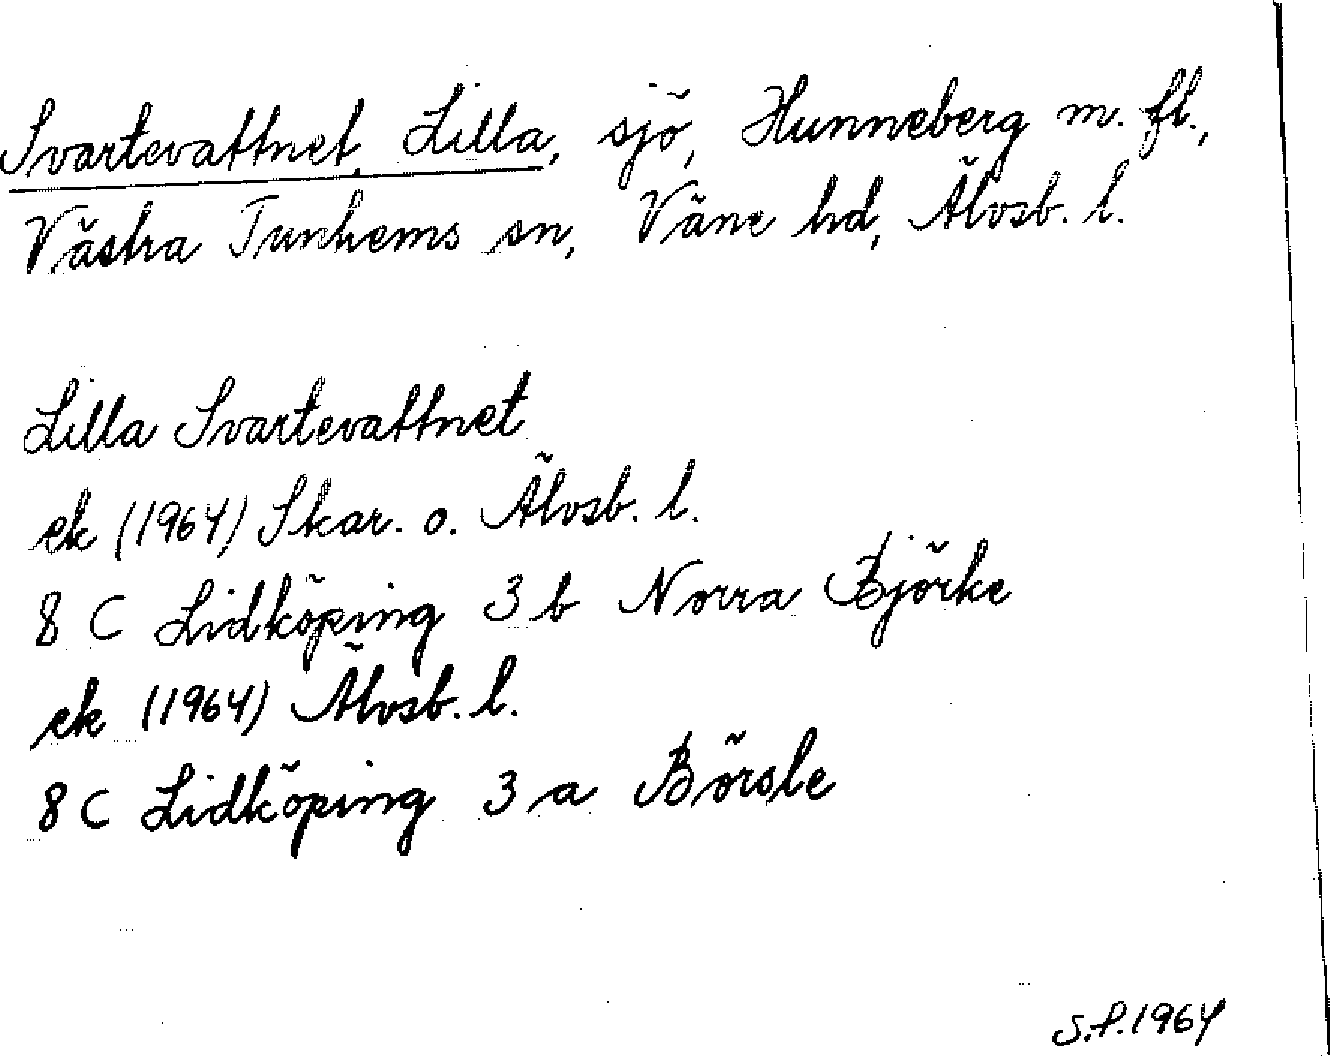 Svartevattnet, Lilla, sjö, Hunneberg m. fl.,
Västra Tunhems sn, Väne hd, Älvsb. l.
Lilla Svartevattnet
ek (1964) Skar. o. Älvsb. l.
8 C Lidköping 3 b Norra Björke
ek (1964) Älvsb. l.
8 C Lidköping 3 a Börsle
S.P. 1964